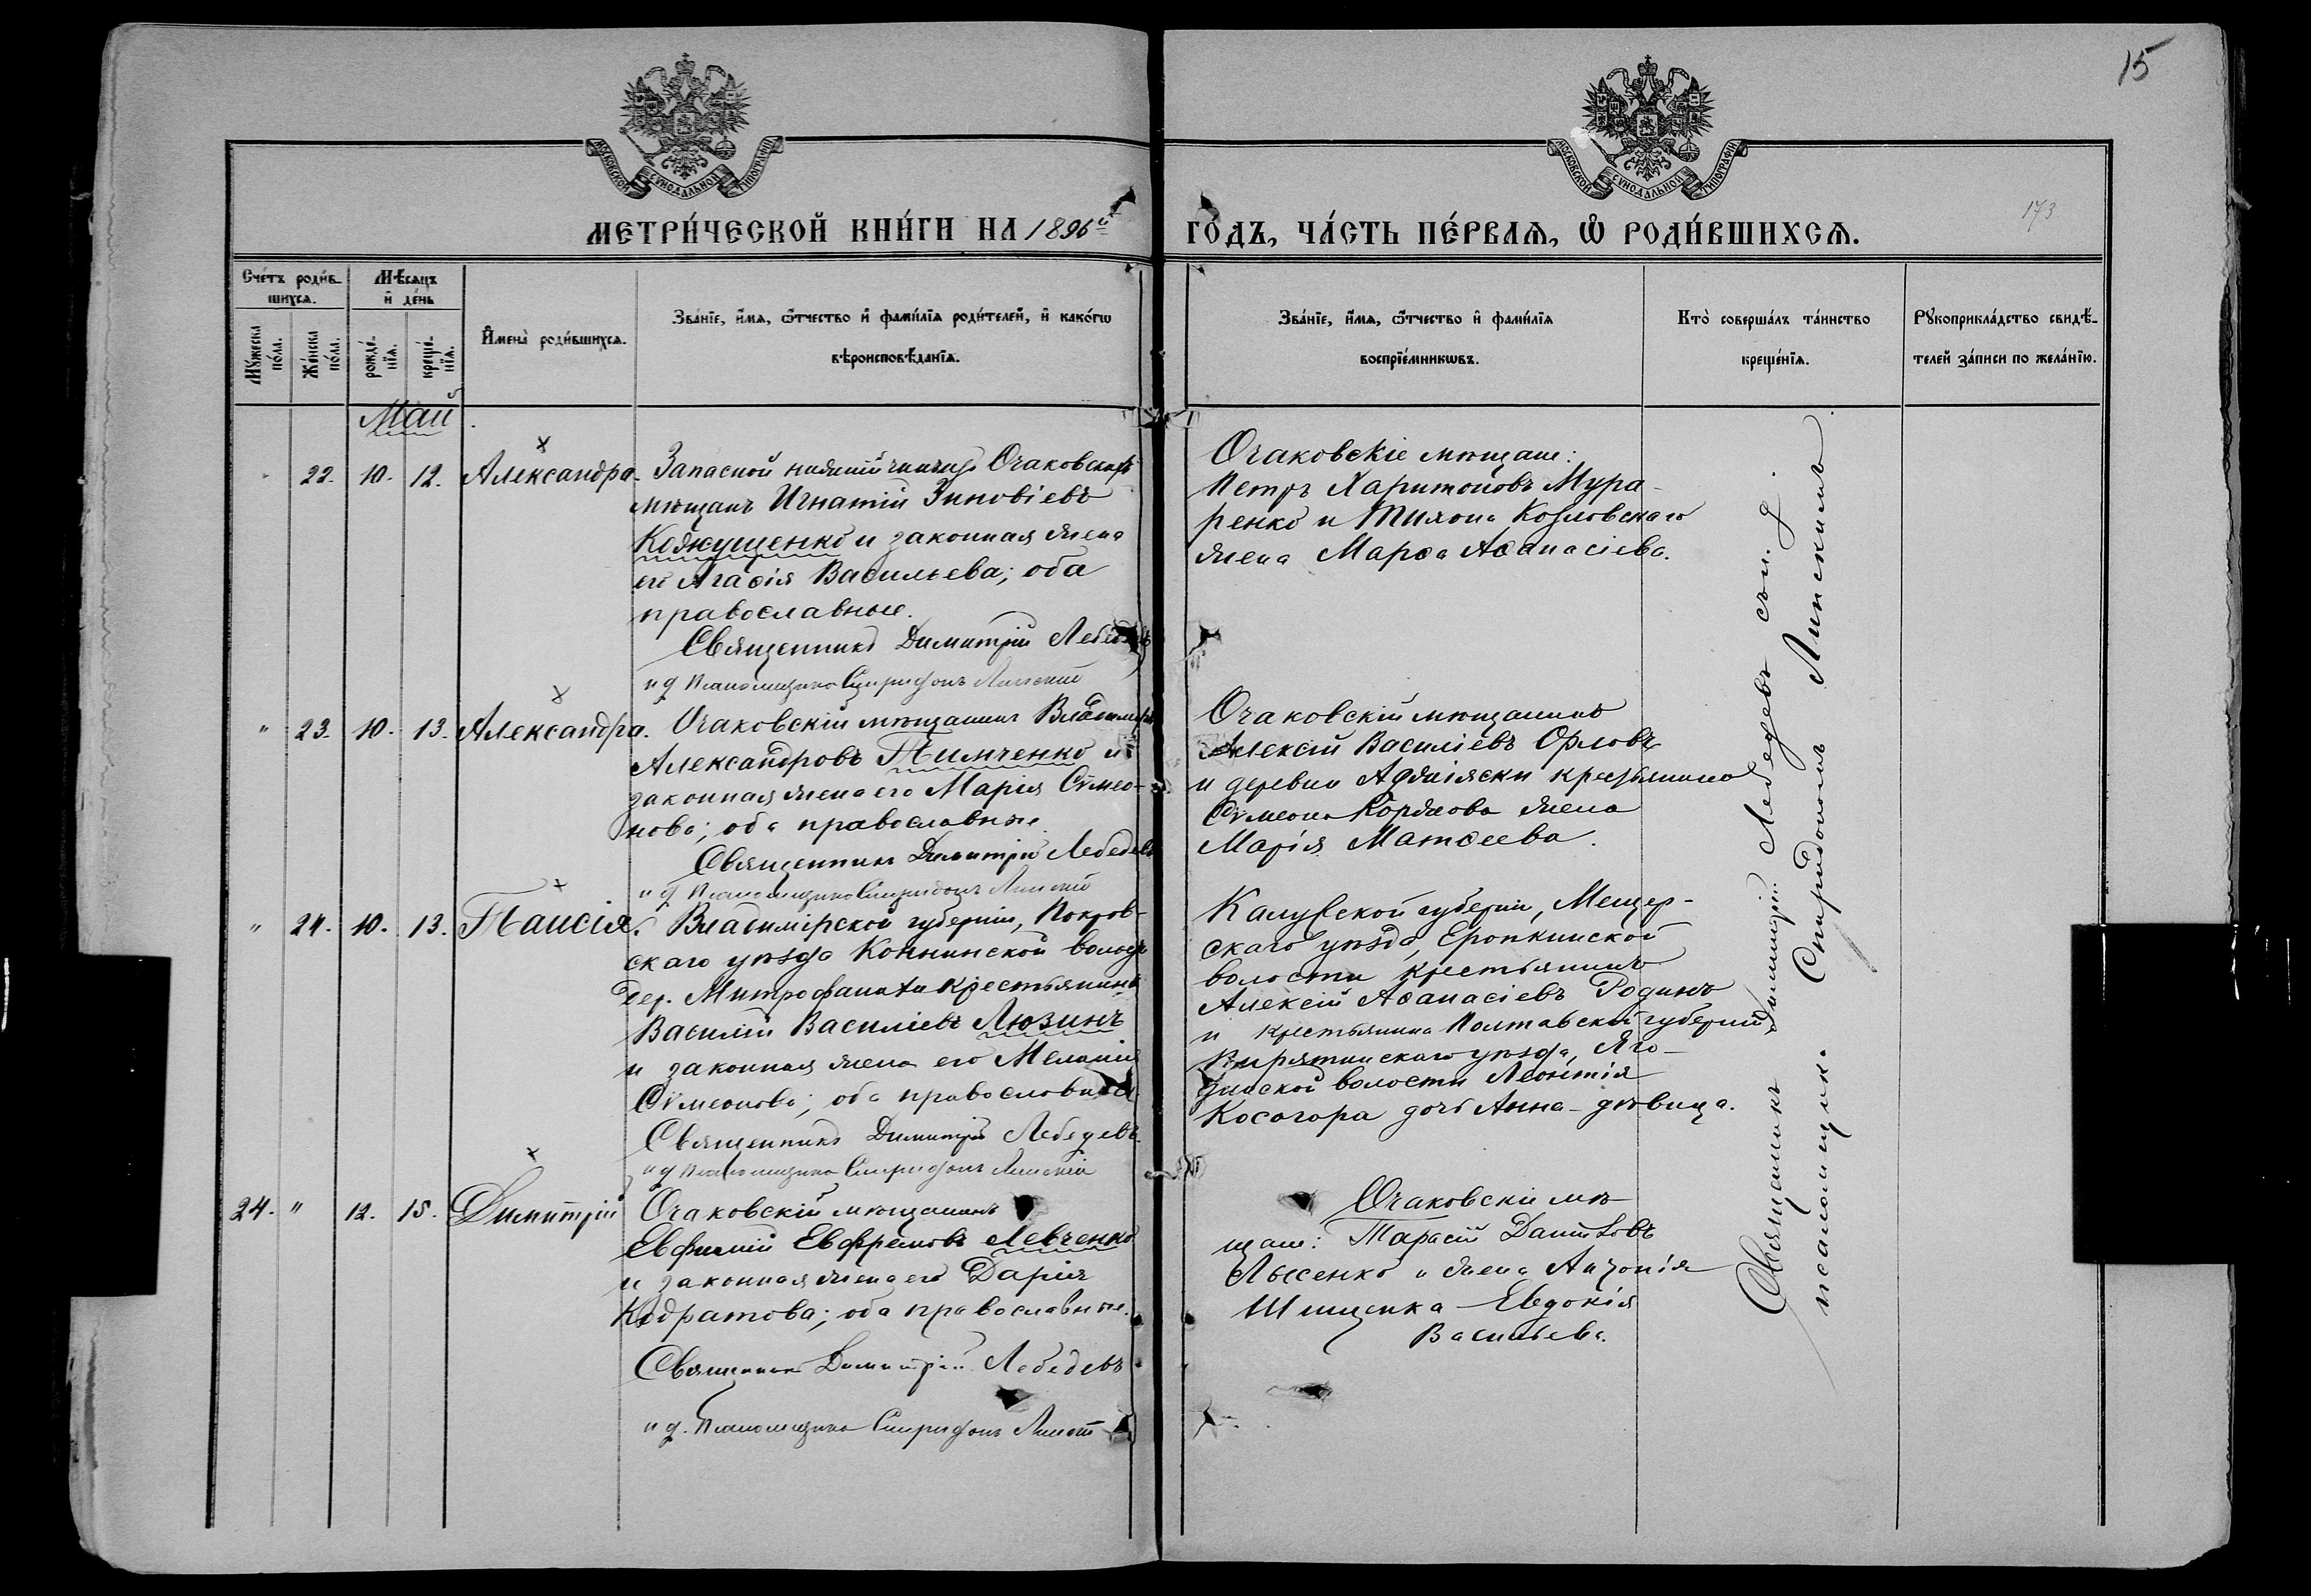 15
173
МОСКОВСКОЙ СѴНОДАЛЬНОЙ ТИПОГРАФІИ
МОСКОВСКОЙ СѴНОДАЛЬНОЙ ТИПОГРАФІИ
МЕТРИ́ЧЕСКОЙ КНИ́ГИ НА 1896й ГО́ДЪ, ЧА́СТЬ ПЕ́РВАѦ, Ѡ РОДИ́ВШИХСѦ.
Сче́тъ роди́в-
шихсѧ.
Мѣ́сѧцъ
и҆ де́нь
Мꙋ́жеска
по́ла.
Же́нска
по́ла.
рожде́-
нїѧ.
креще́-
нїѧ.
И҆мена̀ роди́вшихсѧ.
Зва́нїе, и҆́мѧ, ѻ҆́тчество и҆ фами́лїѧ роди́телей, и҆ како́гѡ
вѣроисповѣ́данїѧ.
Зва́нїе, и҆́мѧ, ѻ҆́тчество и҆ фами́лїѧ
воспрїе́мникѡвъ.
Кто̀ соверша́лъ та́инство
креще́нїѧ.
Рꙋкоприкла́дство свидѣ́-
телей за́писи по жела́нїю.
Май
22. 10. 12. Александра.
Запасной нижній чинъ Очаковскій
мѣщанъ Игнатій Зиновіевъ
Кожушенко и законная жена
его Агаѳія Васильева; оба
православные.
Священникъ Димитрій Лебедевъ
и д Псаломщика Спиридонъ Липскій
Очаковскіе мѣщане:
Петръ Харитоновъ Мура-
ренко и Тихона Козловскаго
жена Марѳа Аѳанасіева.
" 23. 10. 13. Александра.
Очаковскій мѣщанинъ Владиміръ
Александровъ Пимченко и
законная жена его Марія Сѵмео-
нова; оба православные
Священникъ Димитрій Лебедевъ
и д Псаломщика Спиридонъ Липскій
Очаковскій мѣщанинъ
Алексій Василіевъ Орловъ
и деревни Аджіяски крестьянина
Сѵмеона жена
Марія Матѳеева.
" 24. 10. 13. Таисія.
Владимірской губерніи, Покров-
скаго уѣзда волости
дер. крестьянинъ
Василій Василіевъ Люзинъ
и законная жена его Меланія
Сѵмеонова; оба православные
Священникъ Димитрій Лебедевъ.
и д Псаломщика Спиридонъ Липскій
Калужской губерніи, Мещер-
скаго уѣзда, Еропкинской
волости крестьянинъ
Алексій Аѳанасіевъ Родинъ
и крестьянина Полтавской губерніи,
Пирятинскаго уѣзда, Яго-
динской волости Леонтія
Косогора дочь Анна - дѣвица.
24. " 12. 15. Димитрій
Очаковскій мѣщанинъ
Евфимій Евфремовъ Левченко
и законная жена его Дарія
Кодратова; оба православные.
Священникъ Димитрій Лебедевъ
и д. Псаломщика Спиридонъ Липскій
Очаковскіе мѣ-
щане: Тарасій Даніиловъ
Лысенко и жена Антонія
Евдокія
Васильева.
Священникъ Димитрій Лебедевъ съ и. д.
псаломщика Спиридономъ Липскимъ